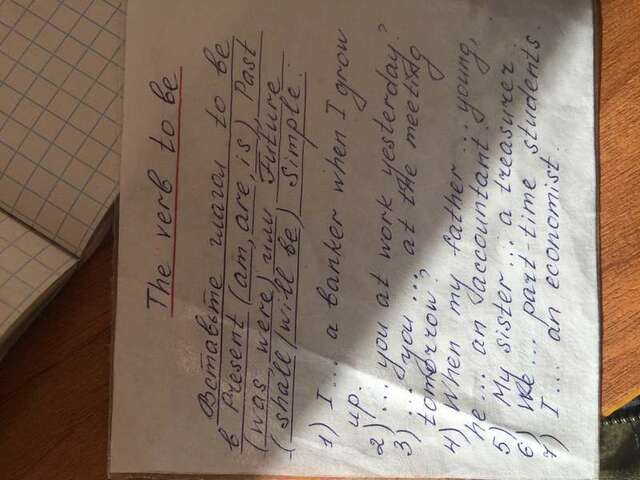 The verb to be
Вставьте глагол to be
в Present (am, are, is), Past
(was, were) или Future
(shall/will be) Simple:
1) I... a banker when I grow
up.
2) ... you at work yesterday?
3) ... you ... at the meeting
tomorrow?
4) When my father ... young,
he ... an accountant.
5) My sister ... a treasurer.
6) We ... part-time students.
7) I ... an economist.